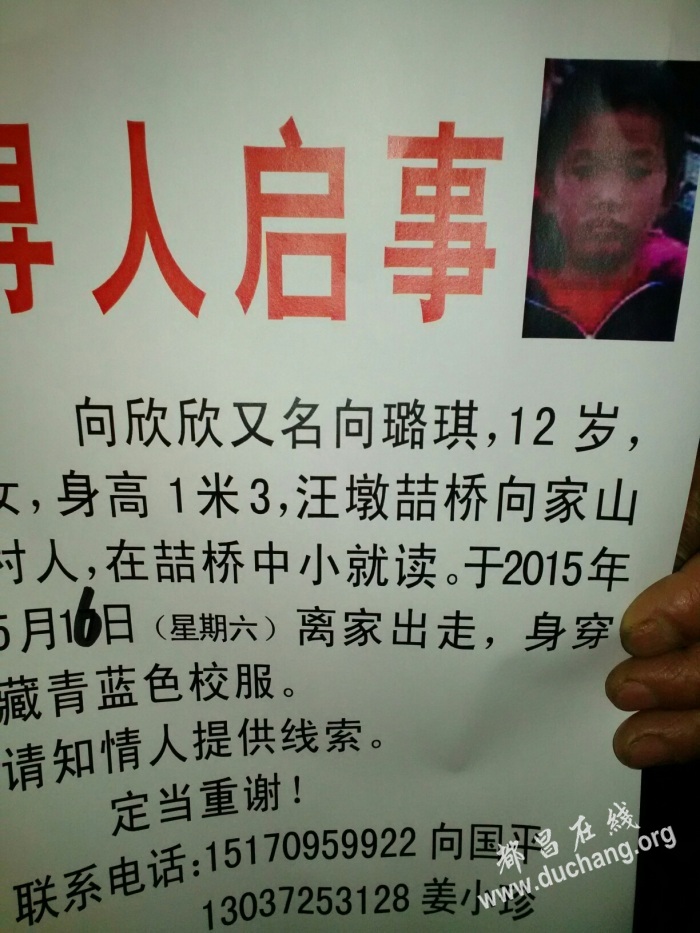 寻人启事
向欣欣又名向璐琪,12岁,
女,身高1米3,汪墩喆桥向家山
村人,在喆桥中小就读。于2015年
5月16日(星期六)离家出走,身穿
藏青蓝色校服。
请知情人提供线索。
定当重谢!
联系电话:15170959922 向国平
13037253128 姜小珍
都昌在线
www.duchang.org